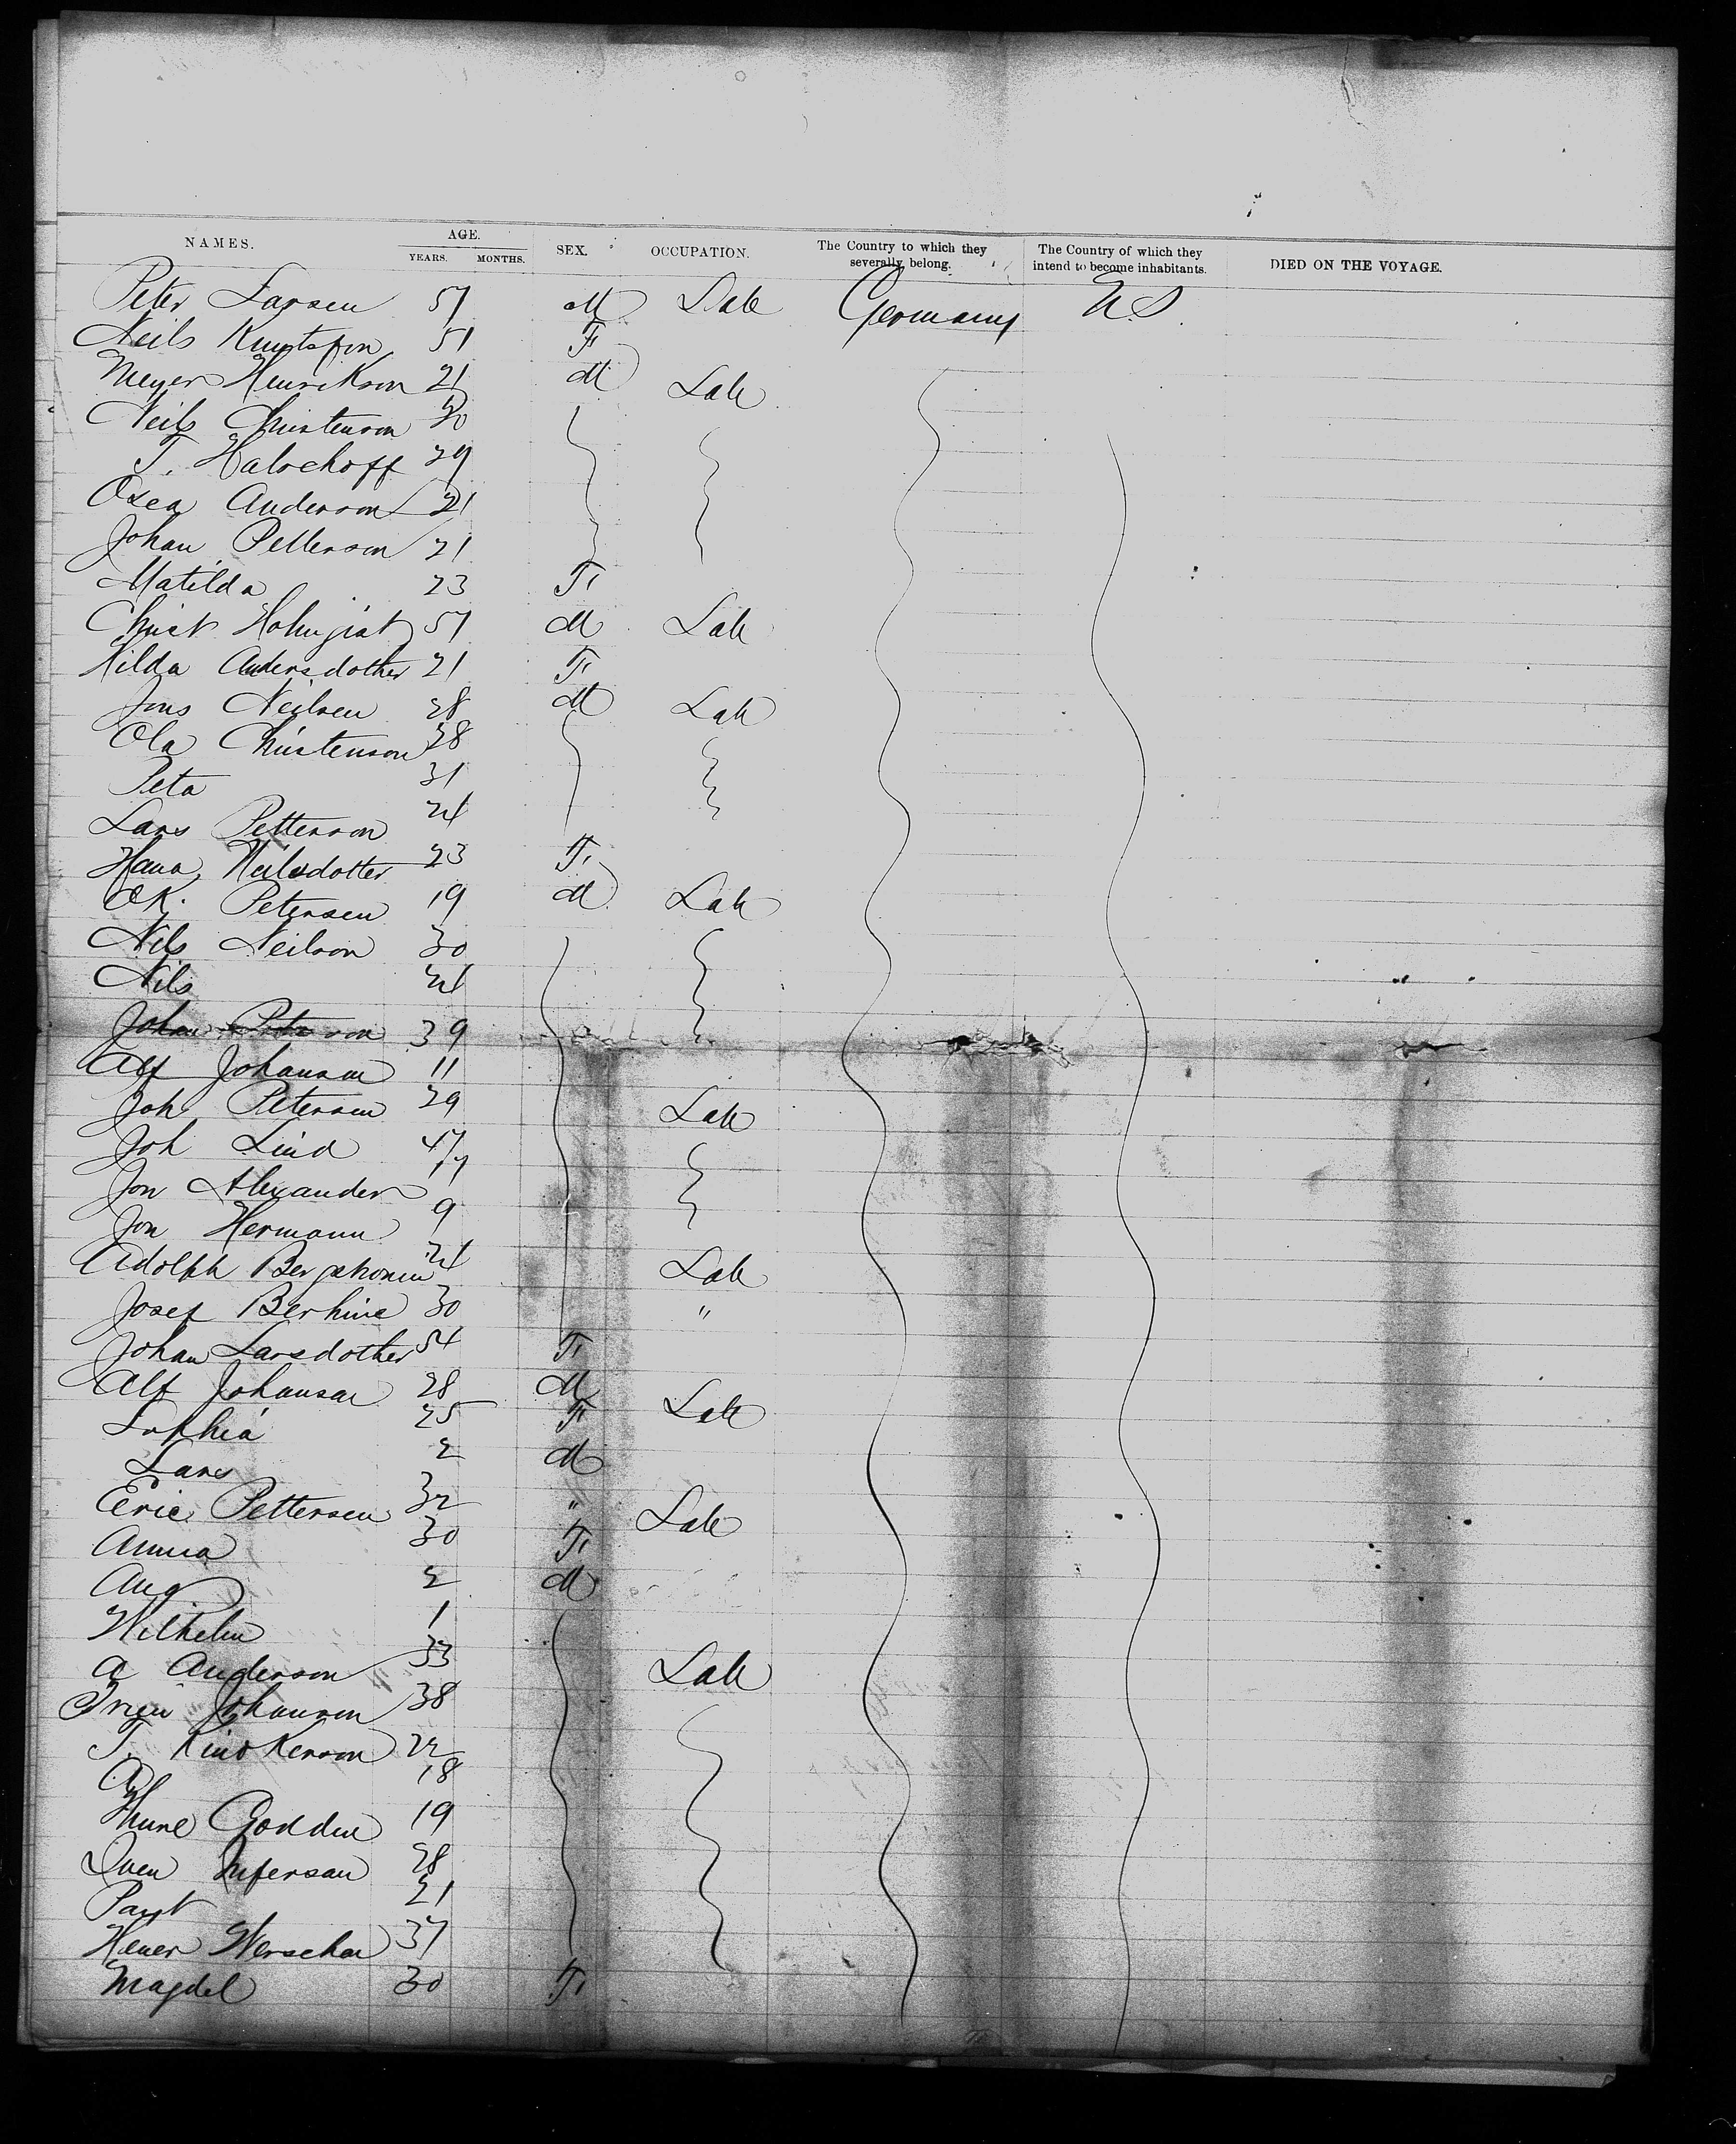 NAMES. AGE. YEARS. MONTHS. SEX. OCCUPATION. The Country to which they severally belong. The Country of which they intend to become inhabitants. DIED ON THE VOYAGE.
Peter Larsen 57 M Lab Germany U.S.
Neils 51 F
Meyer Henrikson 21 M Lab
Neils Christenson 20
T. Halochoff 29
Oxea Anderson 21
Johan Petterson 21
Matilda 23 F
Christ Holmgist 57 M Lab
Hilda Andersdother 21 F
Jons Neilsen 28 M Lab
Ola Christenson 28
Peta 31
Lars Petterson 24
Hana Neilsdotter 23 F
OK. Petersen 19 M Lab
Nils Neilson 30
Nils 24
Johan Peterson 39
Alf Johanson 11
Joh Petersen 29 Lab
Joh Lind 47
Jon Alexander 17
Jon Hermann 9
Adolph 24 Lab
Josef Berhine 30 "
Johan Larsdother 54 F
Alf Johansan 28 M Lab
Sophia 25 F
Lars 2 M
Eric Pettersen 32 " Lab
Anna 30 F
Aug 2 M
Wilhelm 1
A Anderson 33 Lab
Johanson 38
T. 22
A 18
19
Sven 28
21
37
Magdel 30 F